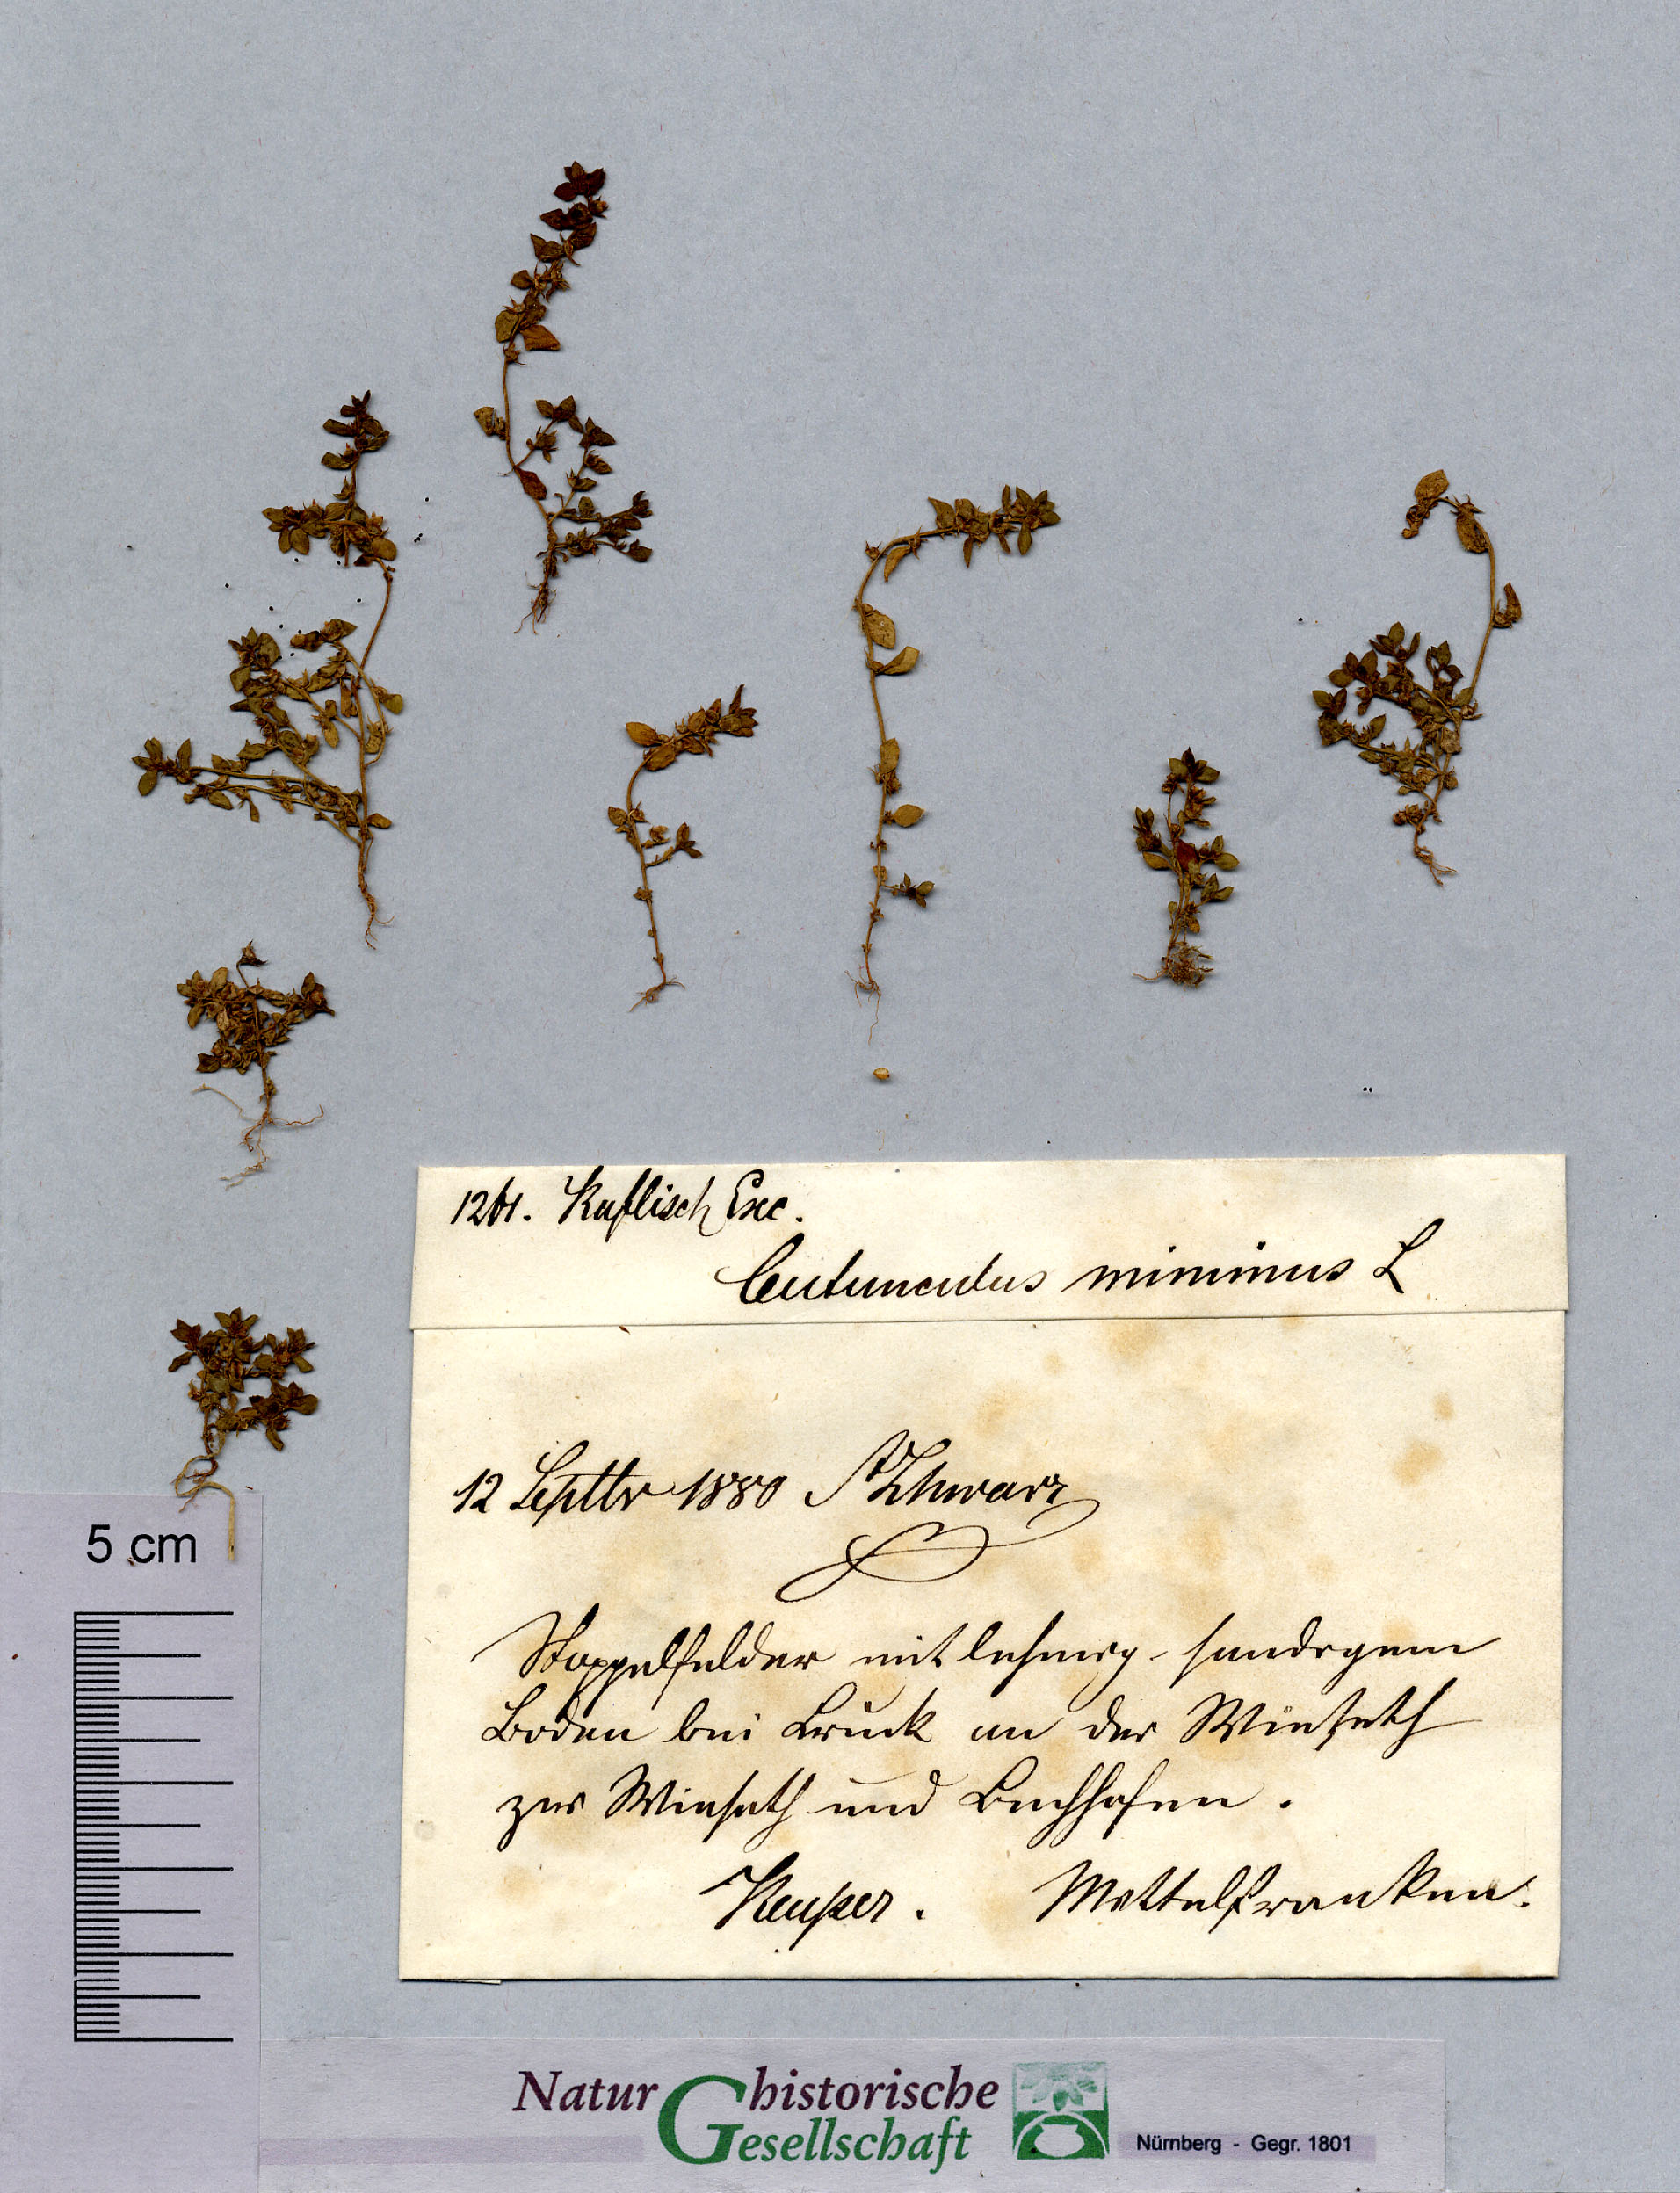 1261. Kaflisch Exc.
Centunculus minimus L
12 Septbr 1880 ASchwarz
Stoppelfelder mit lehmig-sandigem
Boden bei Bruck an der
zur und Buchhofen.
Keuper. Mittelfranken.
5 cm
Naturhistorische
Gesellschaft
Nürnberg - Gegr. 1801